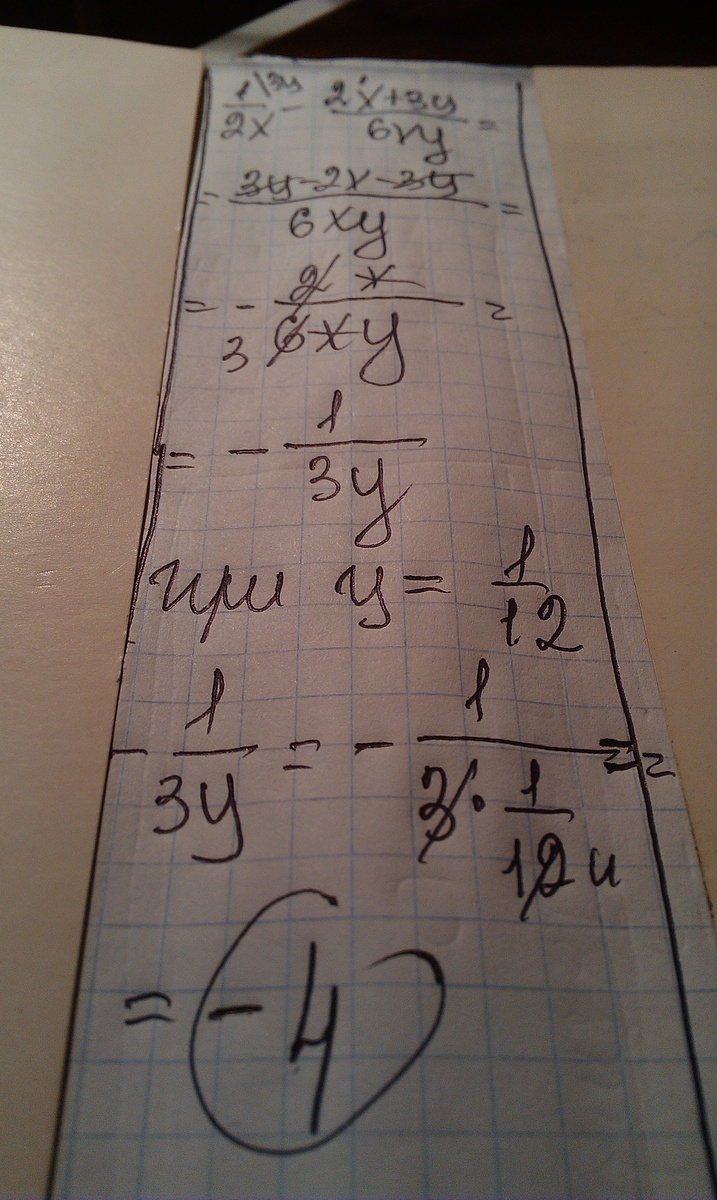 1\3y/2x - 2x+3y/6xy =
= 3y-2x-3y/6xy =
= - 2x/3 6xy =
= - 1/3y
при y = 1/12
- 1/3y = - 1/3·1/12 4 = =
= -4